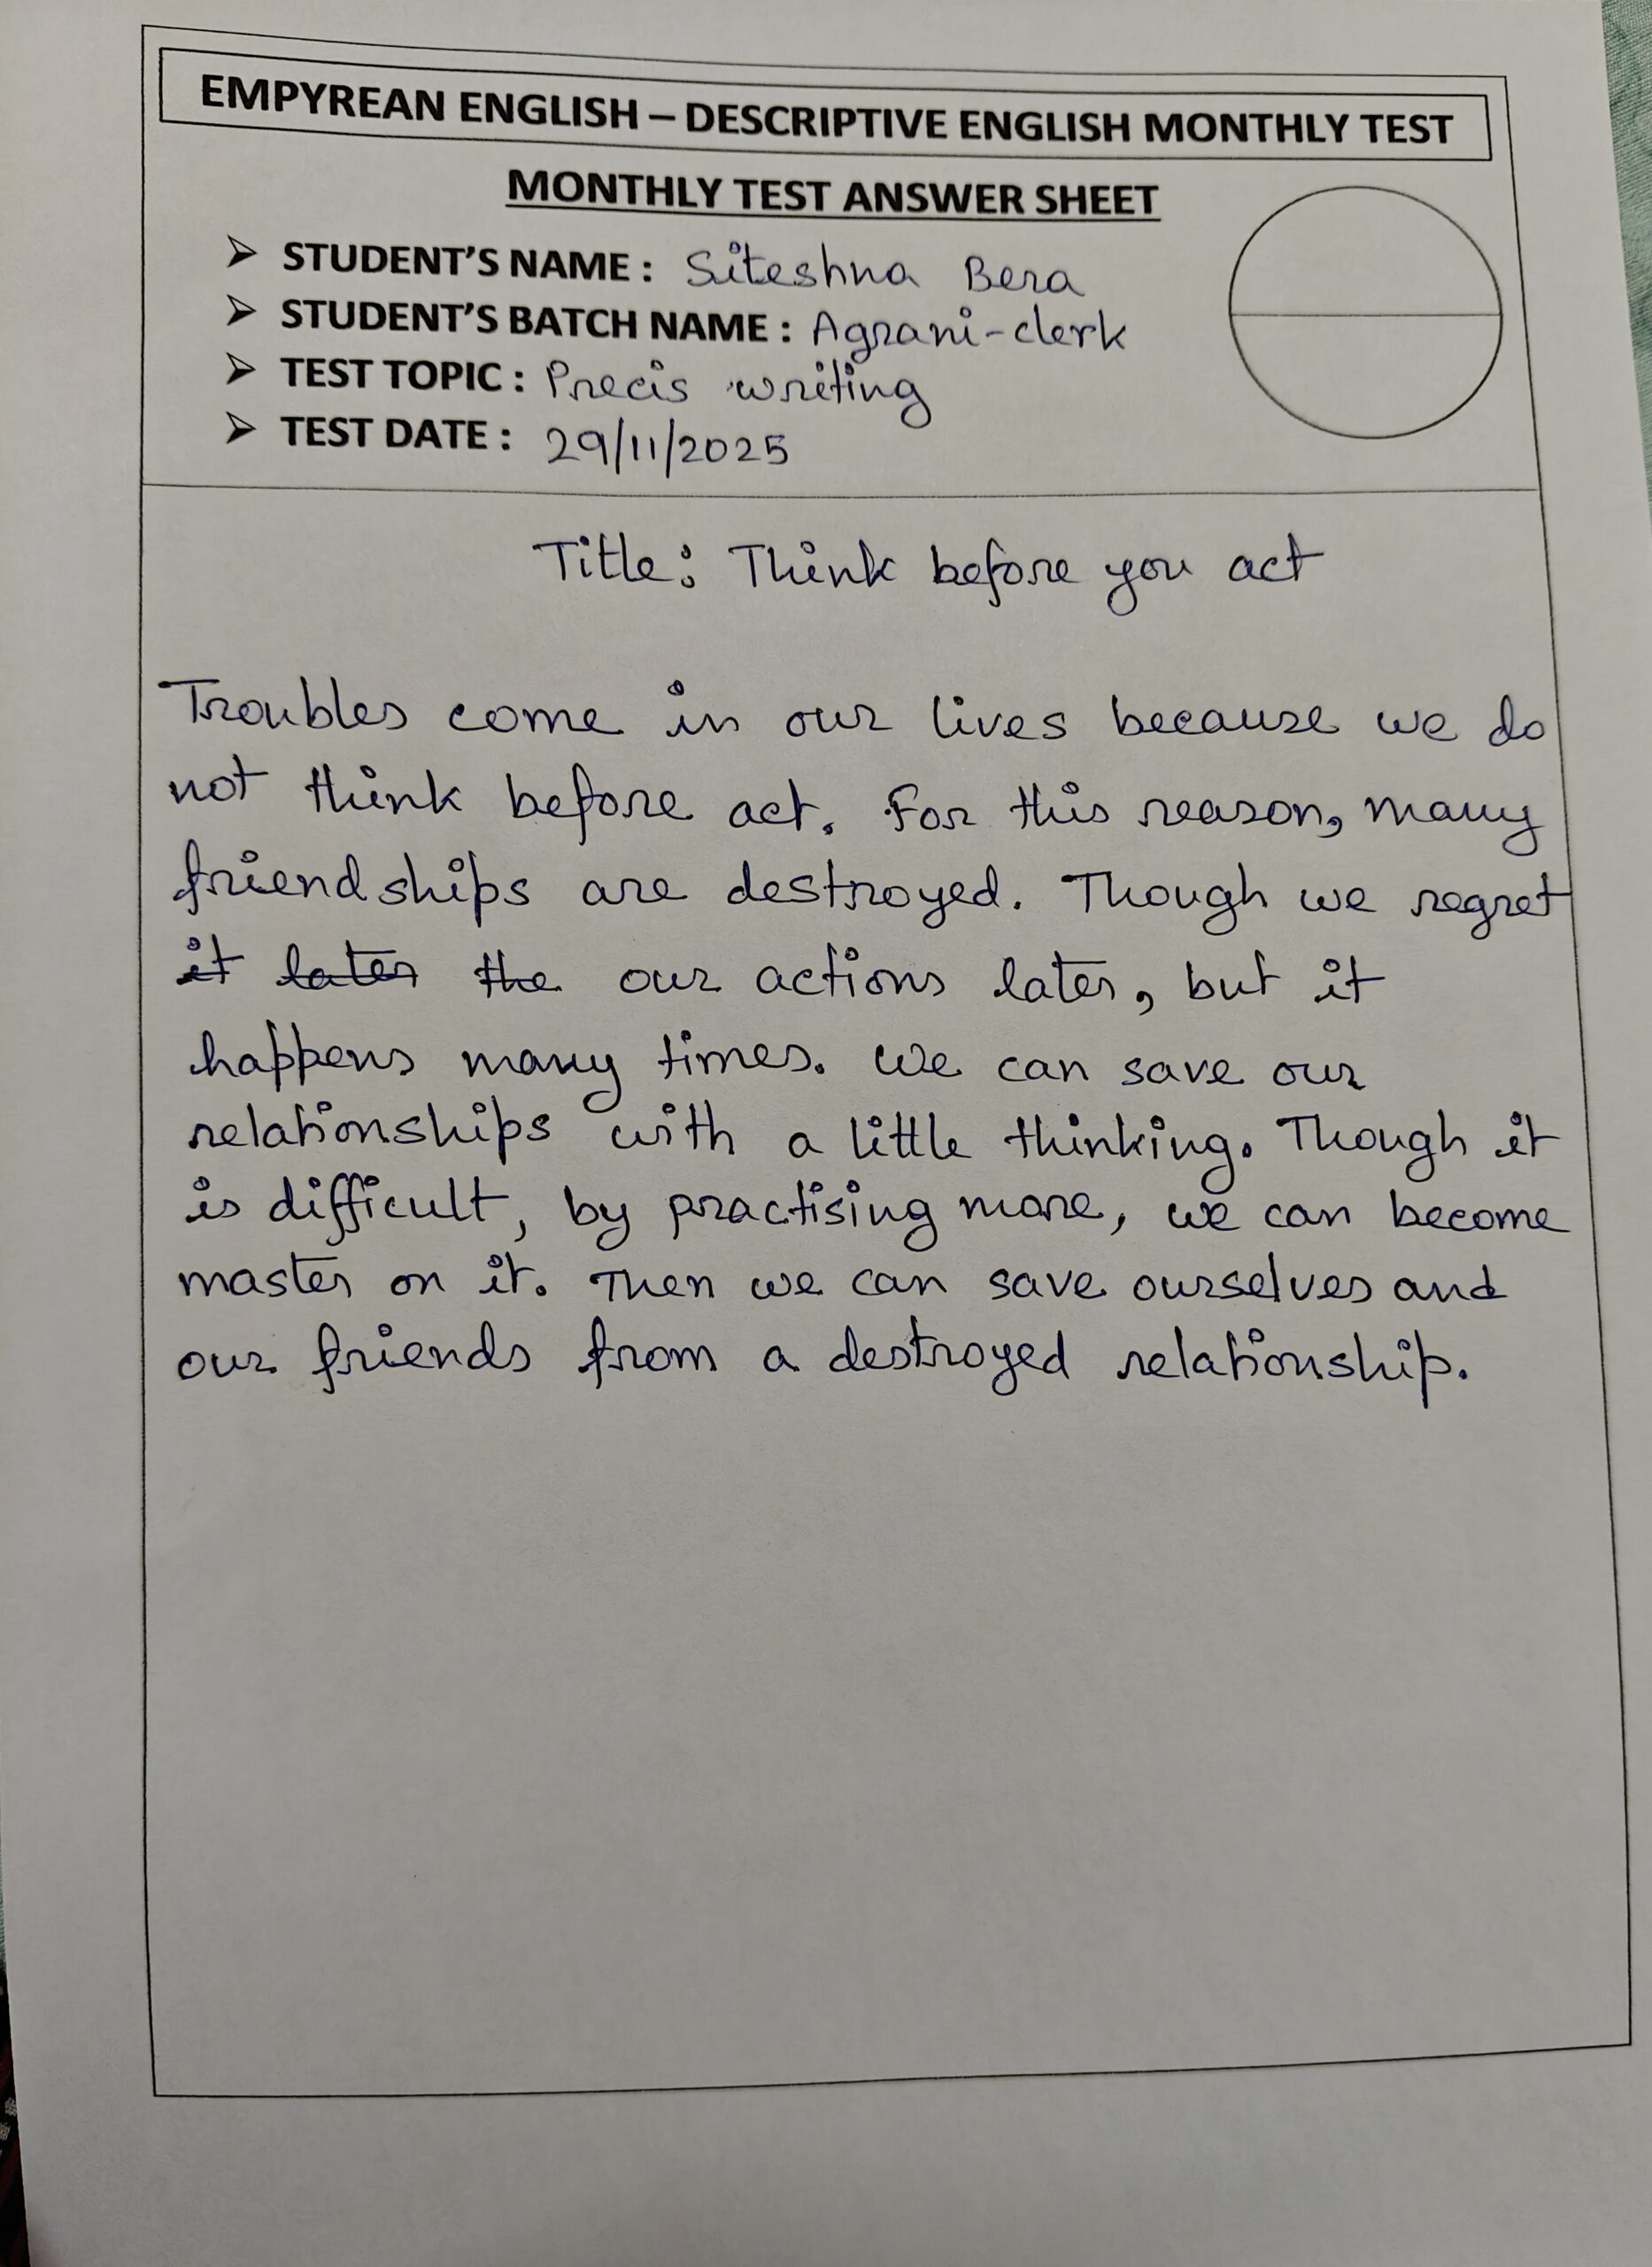 EMPYREAN ENGLISH – DESCRIPTIVE ENGLISH MONTHLY TEST
MONTHLY TEST ANSWER SHEET
➢ STUDENT'S NAME : Siteshna Bera
➢ STUDENT'S BATCH NAME : Agrani-clerk
➢ TEST TOPIC : Precis writing
➢ TEST DATE : 29/11/2025
Title: Think before you act
Troubles come in our lives because we do
not think before act. For this reason, many
friendships are destroyed. Though we regret
it later the our actions later, but it
happens many times. We can save our
relationships with a little thinking. Though it
is difficult, by practising more, we can become
master on it. Then we can save ourselves and
our friends from a destroyed relationship.